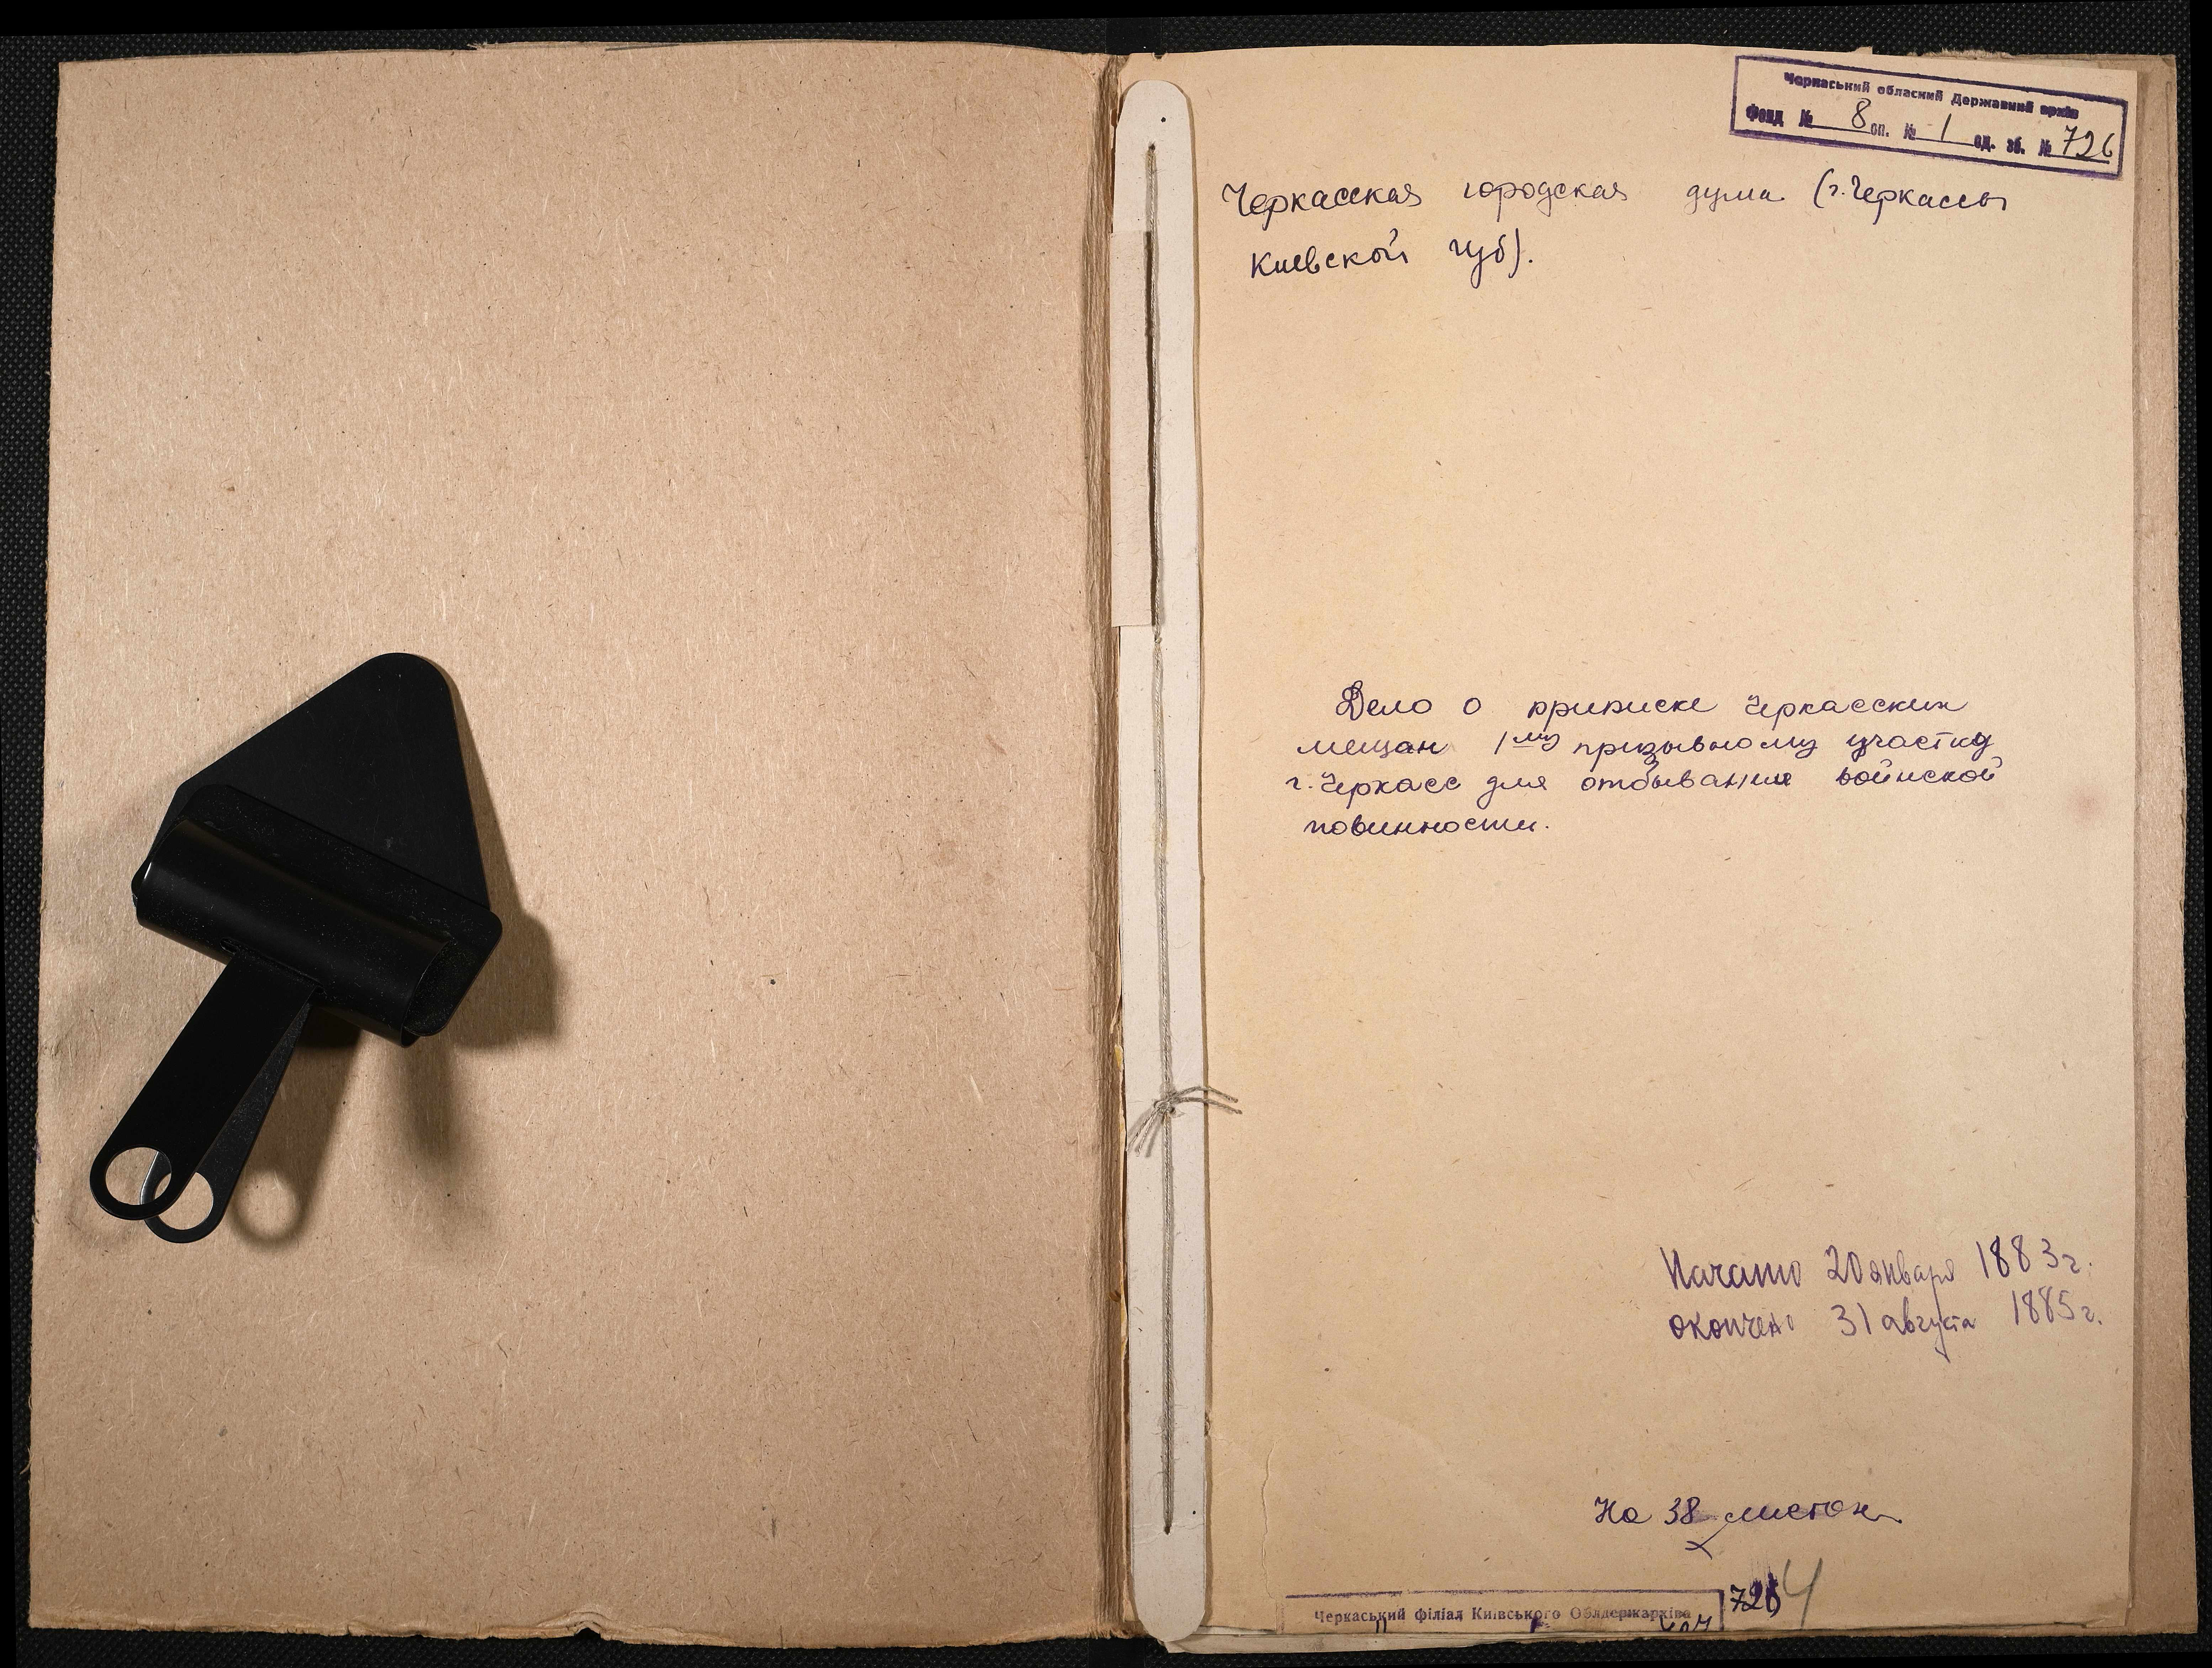 Черкаський обласний Державний архів
Фонд № 8 оп. № 1 од. зб. № 726
Черкасская городская дума (г. Черкассы
Киевской губ).
Дело о приписке черкасских
мещан 1му призывному участку
г. Черкасс для отбывания воинской
повинности.
Начато 20 января 1883 г.
окончено 31 августа 1885 г.
На 38 листах
726
4
Черкаський філіал Київського Облдержархіва